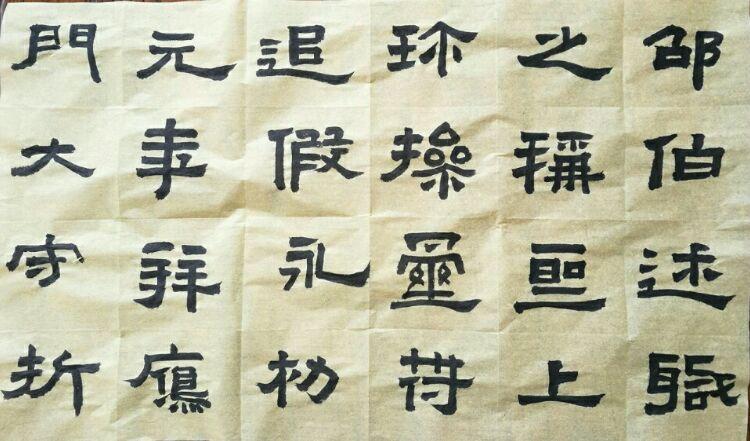 邵伯述職
之稱聖上
珎操璽苻
追假永初
元年拜鴈
門大守折